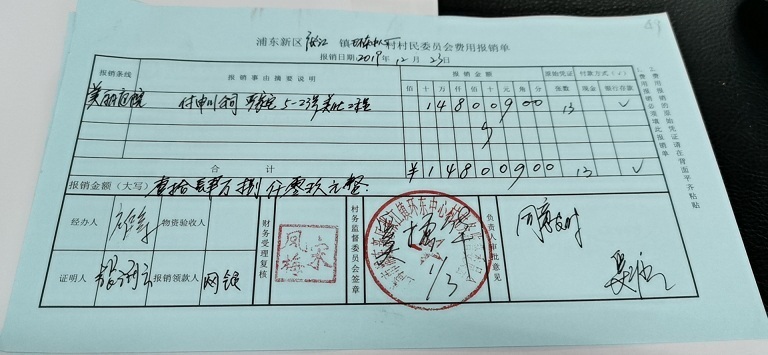 浦东新区 张江 镇 环东中心 村村民委员会费用报销单
报销日期2019年12月23日
报销条线 报销事由摘要说明 报销金额 报销凭证 付款方式(√)
佰 十 万 仟 佰 十 元 角 分 张数 现金 银行存款
美丽庭院 5-23号美化工程 1 4 8 0 0 9 0 0 13 √
合计 ¥ 1 4 8 0 0 9 0 0 13 √
报销金额(大写) 壹拾肆万捌仟零玖元整.
经办人 物资验收人 财务受理复核 村务监督委员会签章 负责人审批意见
同意支付
证明人 报销领款人 网银
1/3
一、费用报销必须填此报销单
二、费用报销的原始凭证请在背面平齐粘贴